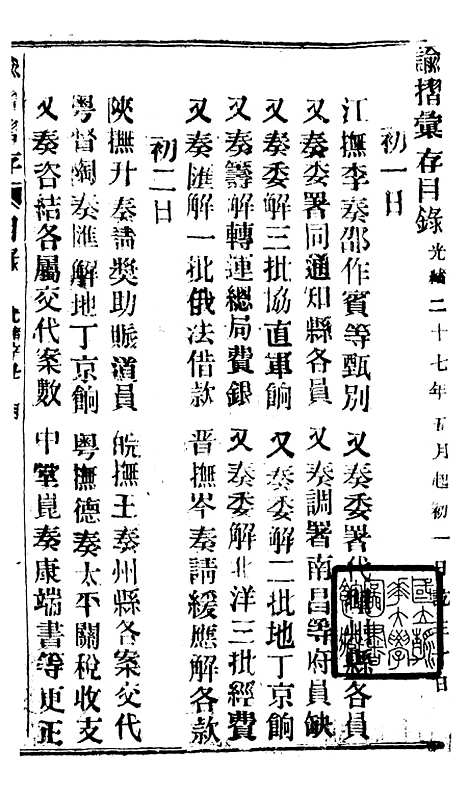 諭摺彙存目錄 光緒二十七年五月起初一日
初一日
江撫李奏邵作賓等甄別 又奏委署代理州縣各員
又奏委署同通知縣各員 又奏調署南昌等府員缺
又奏委解三批協直軍餉 又奏委解二批地丁京餉
又奏籌解轉運總局費銀 又奏委解北洋三批經費
又奏匯解一批俄法借款 晉撫岑奏請緩應解各款
初二日
陝撫升奏請獎助賑道員 皖撫王奏州縣各案交代
粵督陶奏匯解地丁京餉 粵撫德奏太平關稅收支
又奏咨結各屬交代案數 中堂崑奏康端書等更正
國立
圖書